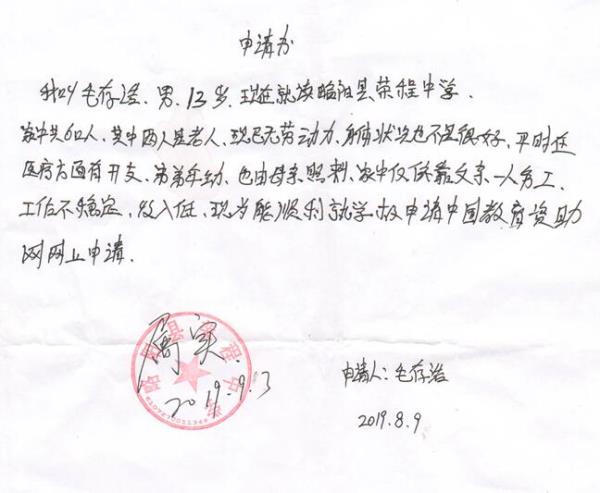 申请书
我叫毛存治、男、13岁、现在就读临洮县荣程中学．
家中共6口人、其中两人是老人、现已无劳动力、身体状况也不是很好、平时在
医疗方面有开支、弟弟年幼、也由母亲照料、家中仅依靠父亲一人务工、
工作不稳定、收入低、现为能顺利就学，故申请中国教育资助
网网上申请．
属实
2019.9.3
荣程中学
申请人：毛存治
2019.8.9